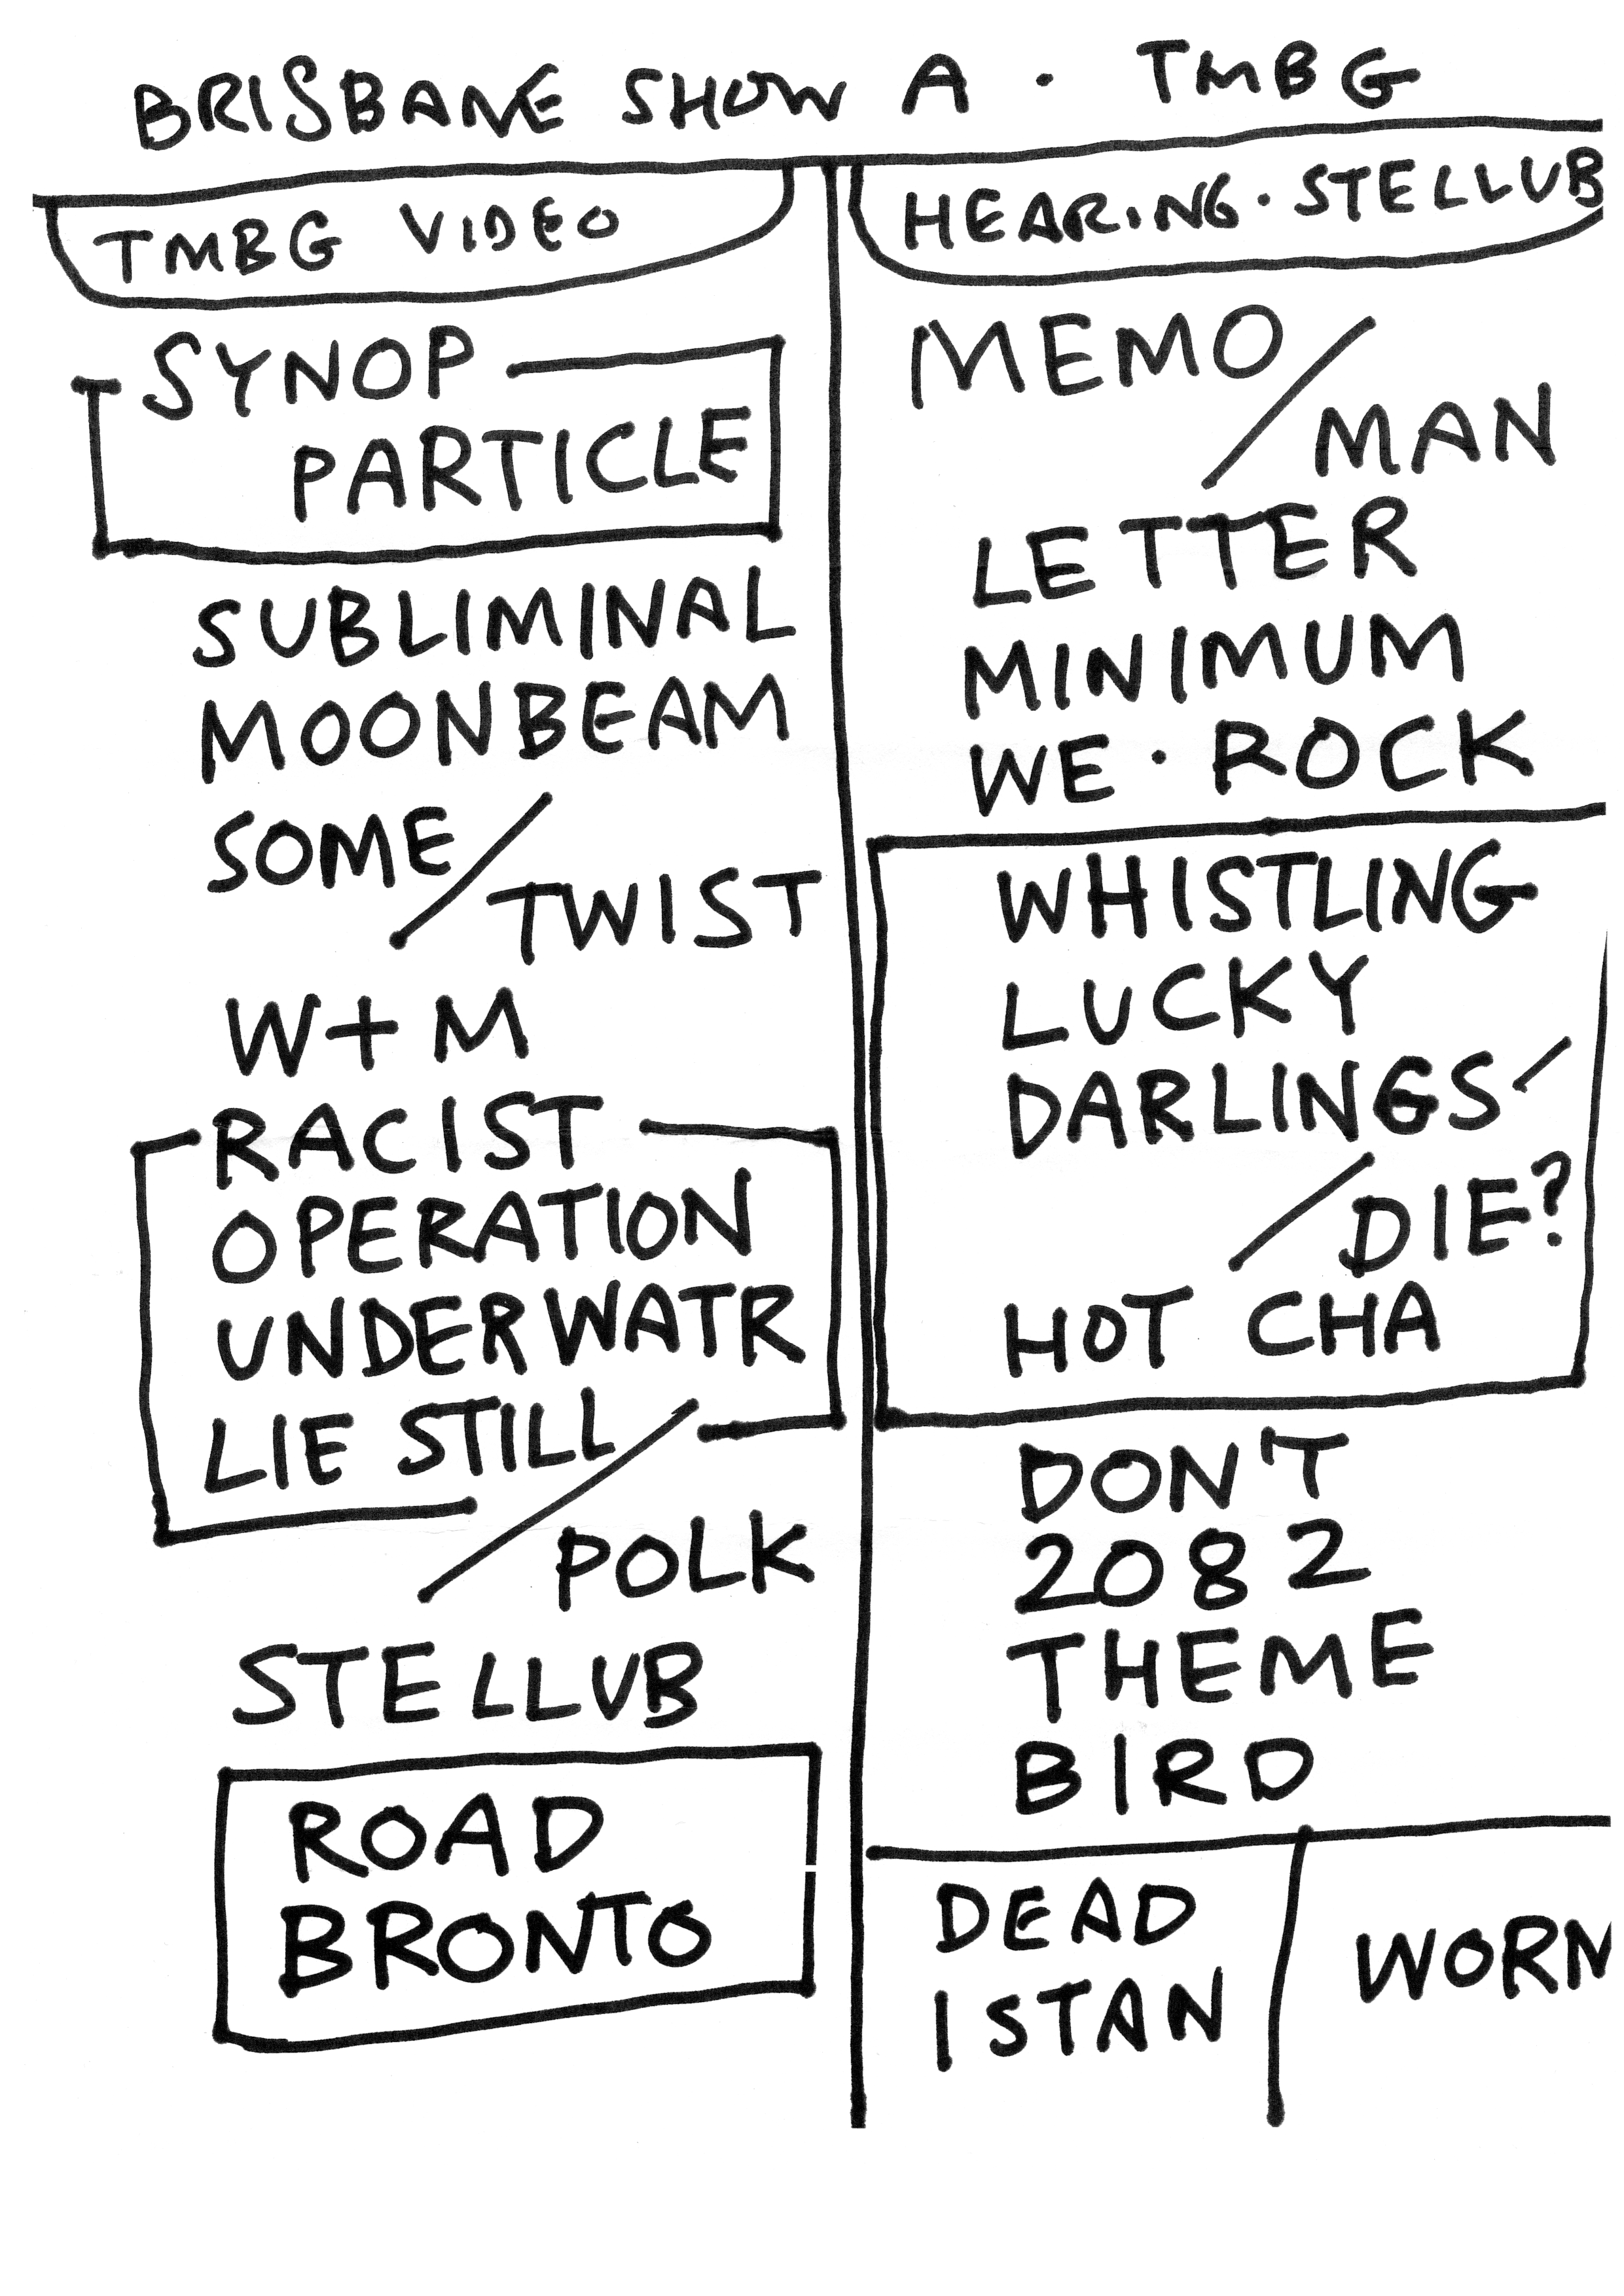 BRISBANE SHOW A · TMBG
TMBG VIDEO
SYNOP
PARTICLE
SUBLIMINAL
MOONBEAM
SOME /
TWIST
W+M
RACIST
OPERATION
UNDERWATR
LIE STILL /
POLK
STELLUB
ROAD
BRONTO
HEARING · STELLUB
MEMO /
MAN
LETTER
MINIMUM
WE · ROCK
WHISTLING
LUCKY
DARLINGS /
/ DIE?
HOT CHA
DON'T
2082
THEME
BIRD
DEAD
ISTAN